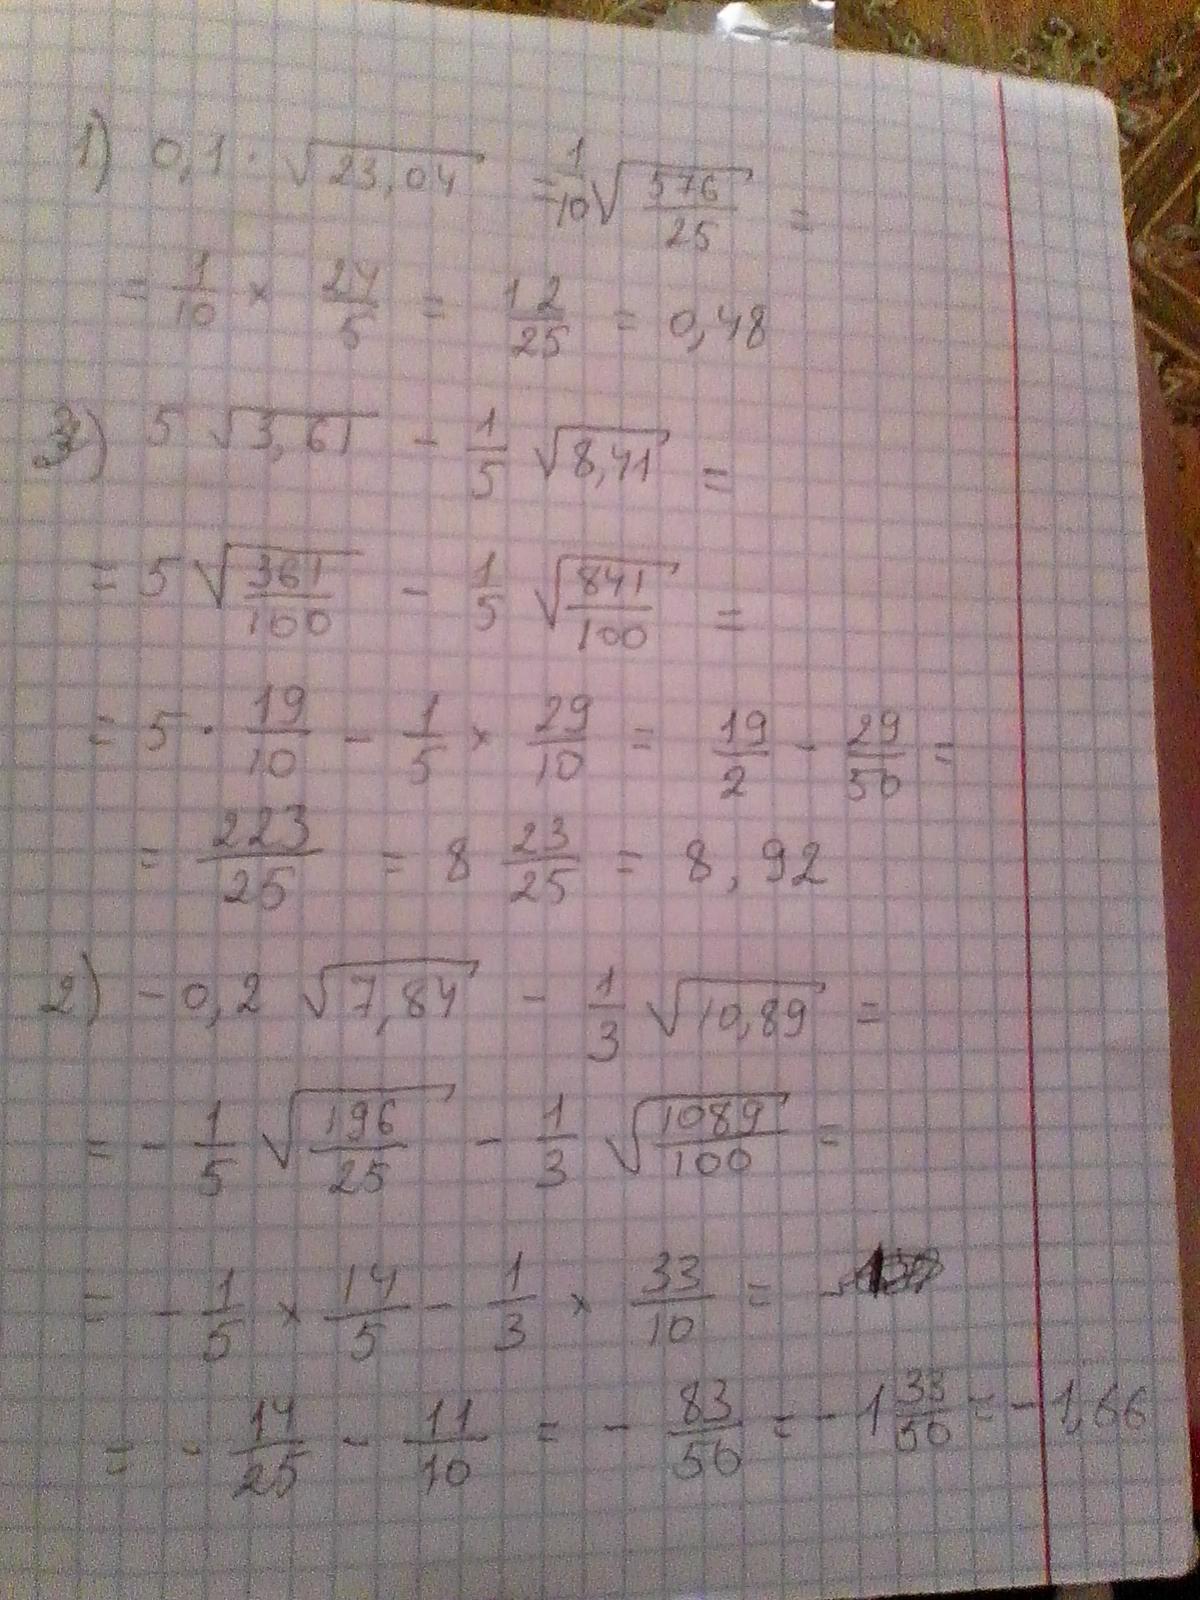 1) 0,1 · √23,04 = 1/10 √(576/25) =
= 1/10 × 24/5 = 12/25 = 0,48
3) 5 √3,61 - 1/5 √8,41 =
= 5 √(361/100) - 1/5 √(841/100) =
= 5 · 19/10 - 1/5 × 29/10 = 19/2 - 29/50 =
= 223/25 = 8 23/25 = 8,92
2) - 0,2 √7,84 - 1/3 √10,89 =
= - 1/5 √(196/25) - 1/3 √(1089/100) =
= - 1/5 × 14/5 - 1/3 × 33/10 = -
= - 14/25 - 11/10 = - 83/50 = - 1 33/50 = - 1,66